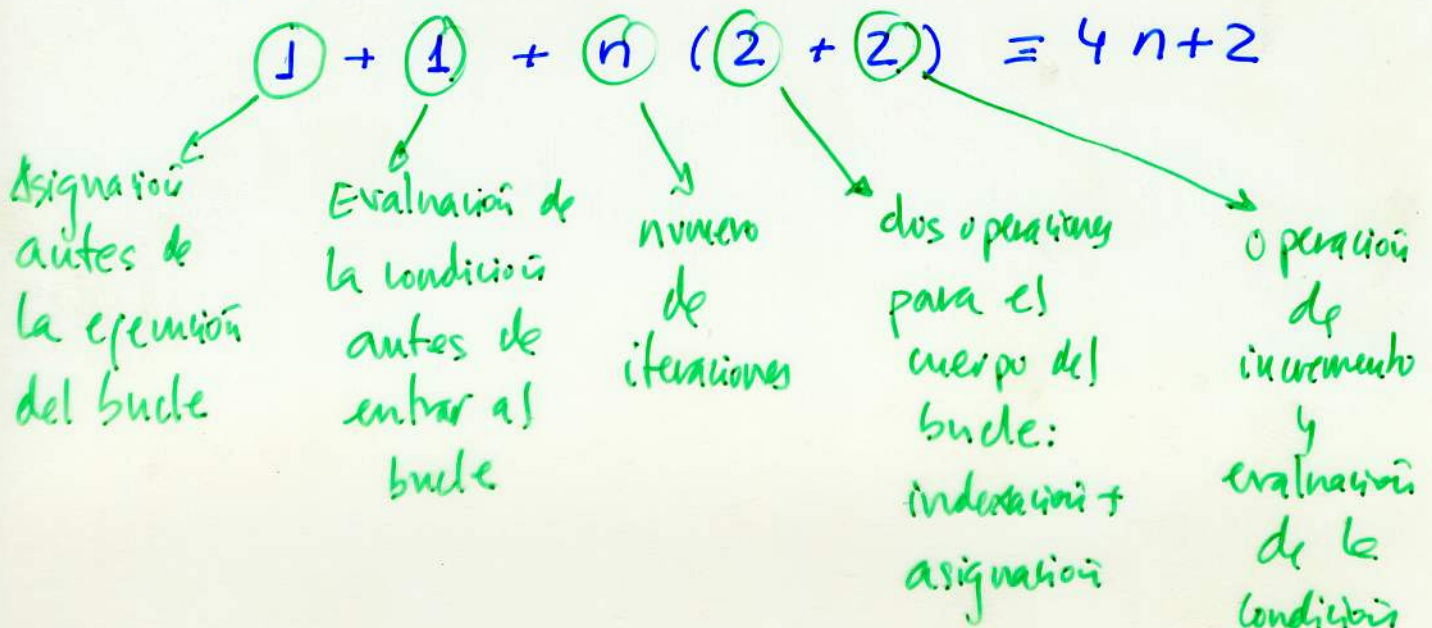 1 + 1 + n (2 + 2) ≡ 4n+2
Asignación
antes de
la ejecución
del bucle
Evaluación de
la condición
antes de
entrar al
bucle
numero
de
iteraciones
dos operaciones
para el
cuerpo del
bucle:
indexación +
asignación
operación
de
incremento
y
evaluación
de la
condición